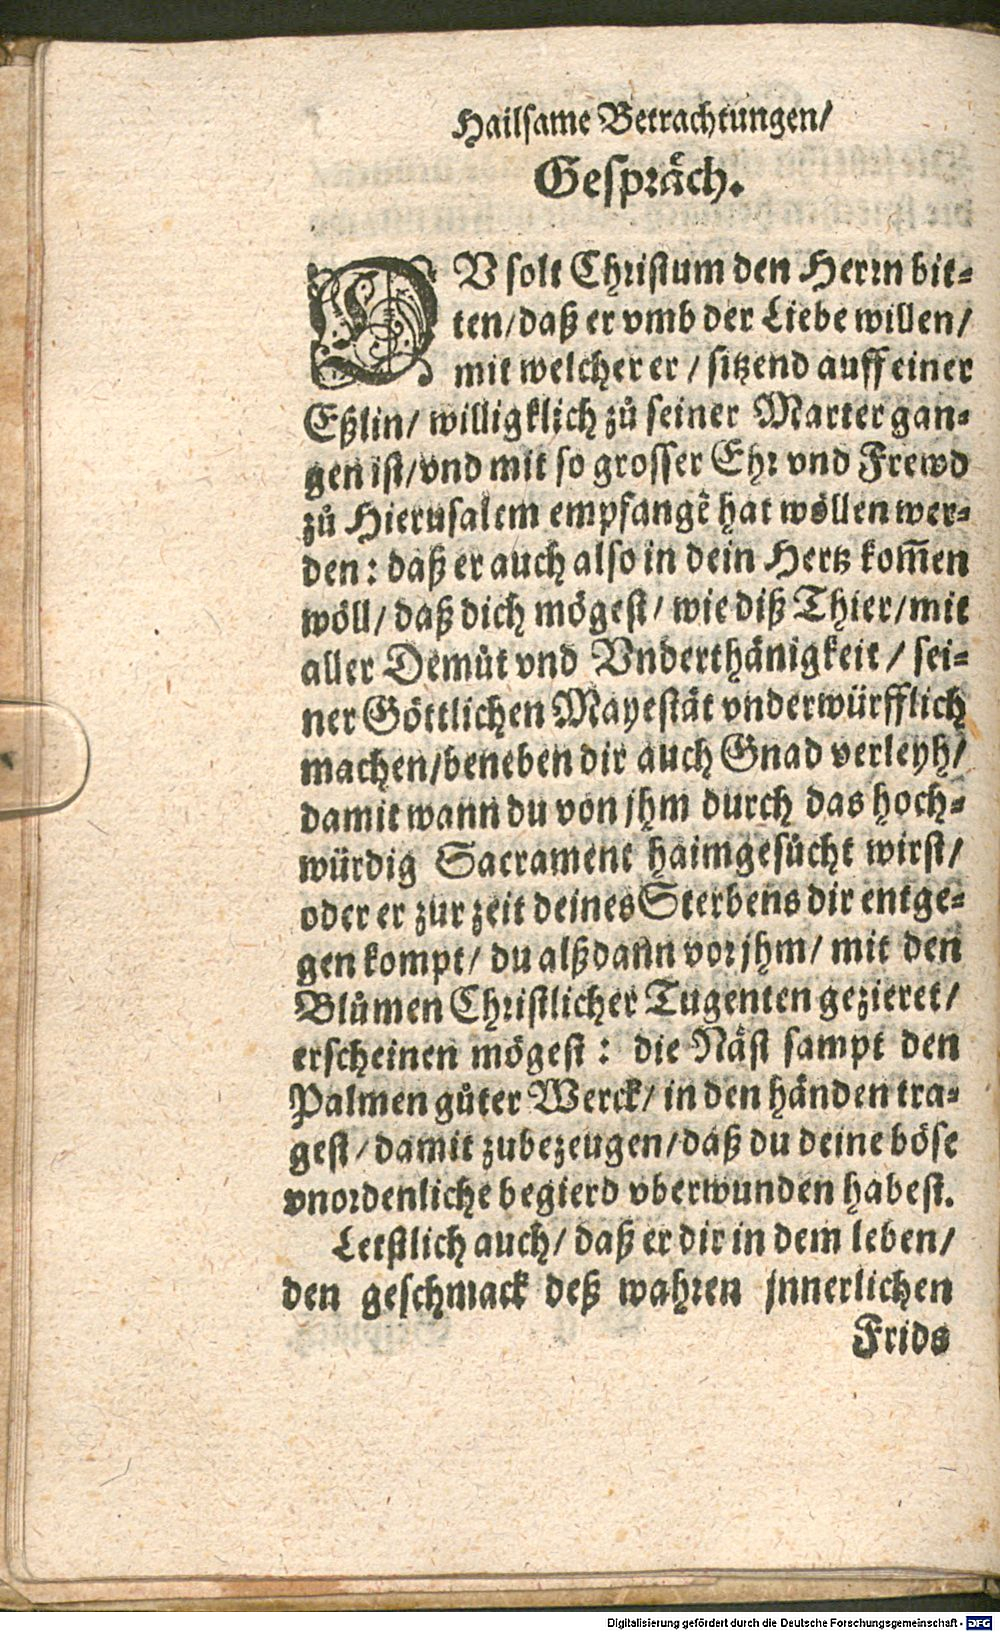 Hailsame Betrachtungen/
Gespraͤch.
DV solt Christum den Herrn bit-
ten/daß er vmb der Liebe willen/
mit welcher er / sitzend auff einer
Eßlin/ willigklich zuͦ seiner Marter gan-
gen ist/vnd mit so grosser Ehr vnd Frewd
zuͦ Hierusalem empfangẽ hat woͤllen wer-
den : daß er auch also in dein Hertz kom̃en
woͤll/ daß dich moͤgest/ wie diß Thier/mit
aller Demuͦt vnd Vnderthaͤnigkeit / sei-
ner Goͤttlichen Mayestaͤt vnderwuͤrfflich
machen/beneben dir auch Gnad verleyh/
damit wann du von jhm durch das hoch-
wuͤrdig Sacrament haimgesuͦcht wirst/
oder er zur zeit deines Sterbens dir entge-
gen kompt/ du alßdann vor jhm/ mit den
Bluͦmen Christlicher Tugenten gezieret/
erscheinen moͤgest : die Naͤst sampt den
Palmen guͦter Werck/ in den haͤnden tra-
gest/damit zubezeugen/daß du deine boͤse
vnordenliche begierd vberwunden habest.
Letstlich auch/ daß er dir in dem leben/
den geschmack deß wahren jnnerlichen
Frids
Digitalisierung gefördert durch die Deutsche Forschungsgemeinschaft - DFG